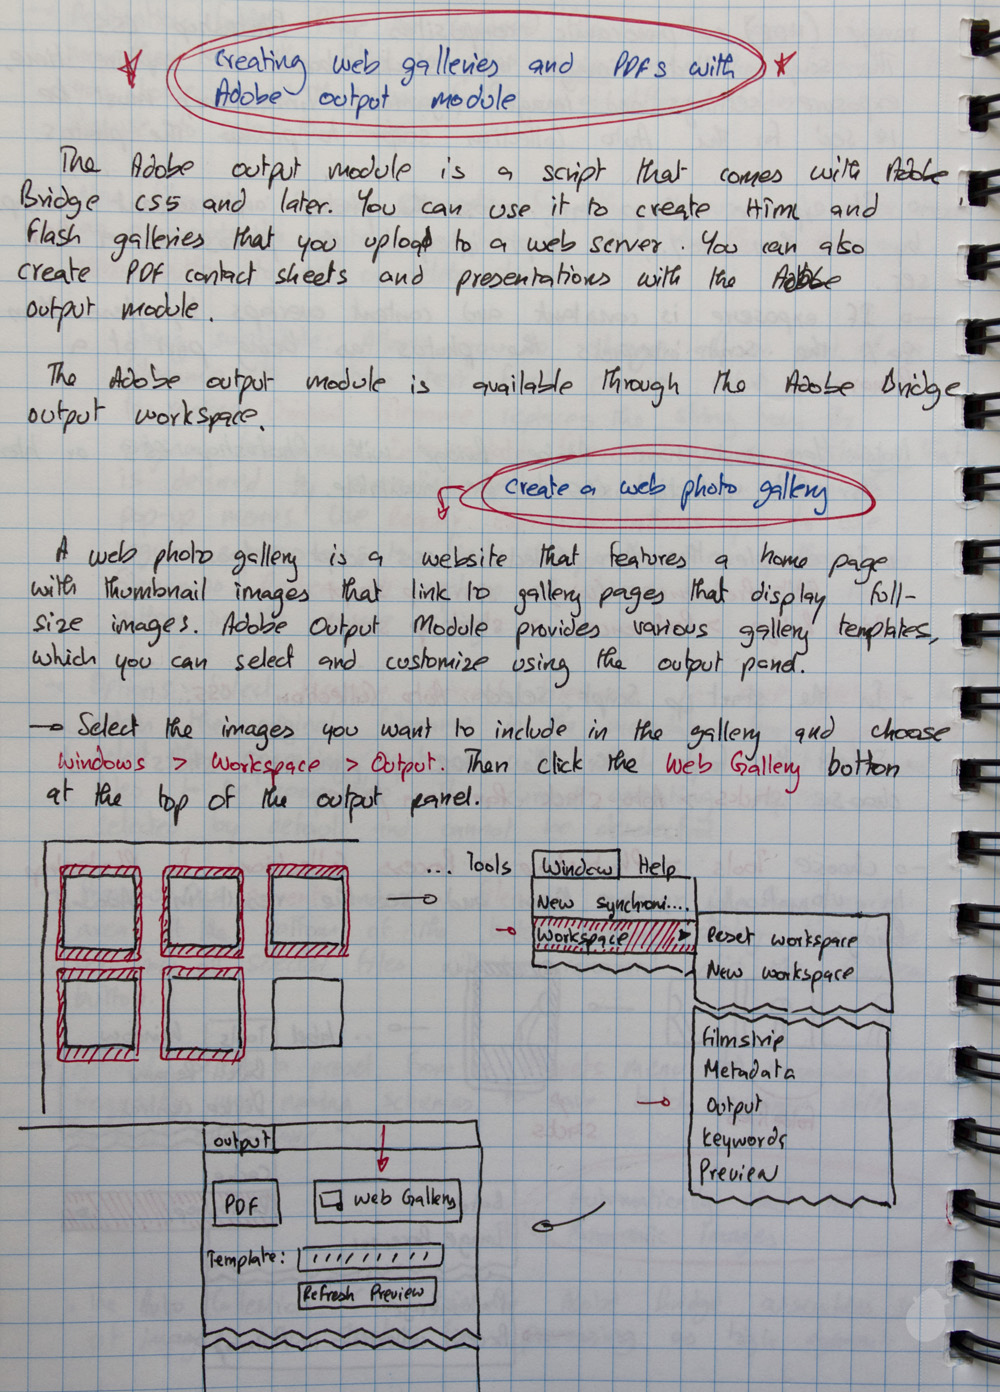 Creating web galleries and PDFs with
Adobe output module
The Adobe output module is a script that comes with Adobe
Bridge CS5 and later. You can use it to create Html and
Flash galleries that you upload to a web server. You can also
create PDF contact sheets and presentations with the Adobe
output module.
The Adobe output module is available through the Adobe Bridge
output workspace.
Create a web photo gallery
A web photo gallery is a website that features a home page
with thumbnail images that link to gallery pages that display full-
size images. Adobe Output Module provides various gallery templates,
which you can select and customize using the output panel.
→ Select the images you want to include in the gallery and choose
Windows > Workspace > Output. Then click the Web Gallery botton
at the top of the output panel.
... Tools Window Help
New synchroni....
Workspace
Reset workspace
New workspace
Filmstrip
Metadata
Output
Keywords
Preview
output
PDF
Web Gallery
Template:
Refresh Preview